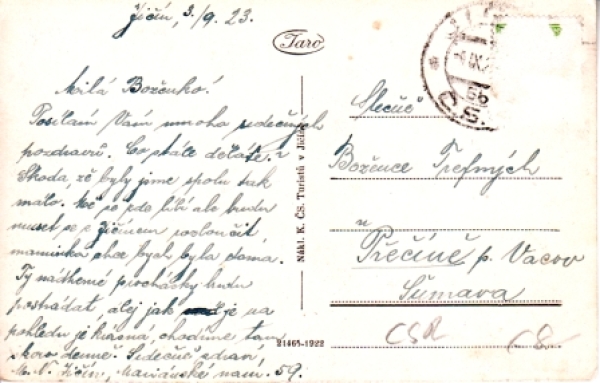 Jičín, 3./9. 23.
Taro
Milá Boženko!
Posílám Vám mnoho srdečných
pozdravů. Co stále děláte?
Škoda, že byly jsme spolu tak
málo. se zde líbí ale budu
muset se s Jičínem rozloučit
maminka chce bych byla doma.
Ty nádherné procházky budu
postrádat, alej jak je na
pohledu je krásná, chodíme tam
skoro denně. Srdečně zdraví,
M. N. Jičín, Mariánské nám. 59.
Nákl. K. Čs. Turistů v Jičíně
21465-1922
Slečně
Božence Trefných
v
Přečíně p. Vacov
Šumava
ČSR